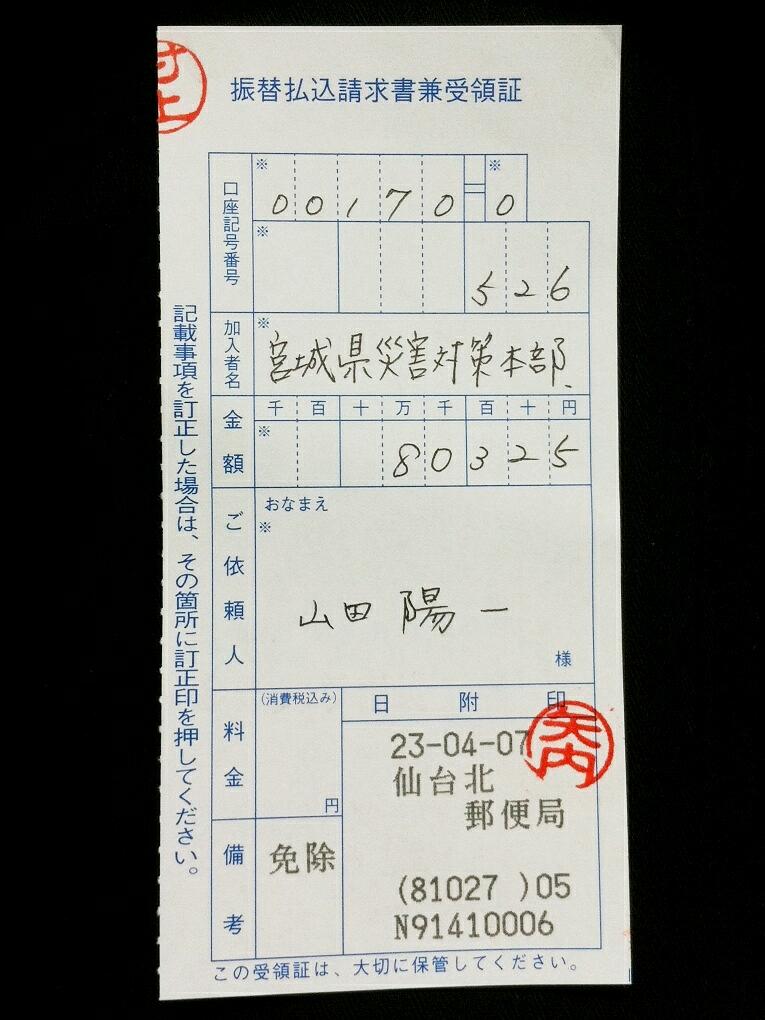 村上
振替払込請求書兼受領証
口座記号番号
※ 00170-※ 0
※ 526
加入者名
※ 宮城県災害対策本部、
金額
千百十万千百十円
※ 80325
ご依頼人
おなまえ
※
山田陽一
様
料金
(消費税込み)
円
備考
免除
日附印
矢内
23-04-07
仙台北
郵便局
(81027 )05
N91410006
この受領証は、大切に保管してください。
記載事項を訂正した場合は、その箇所に訂正印を押してください。